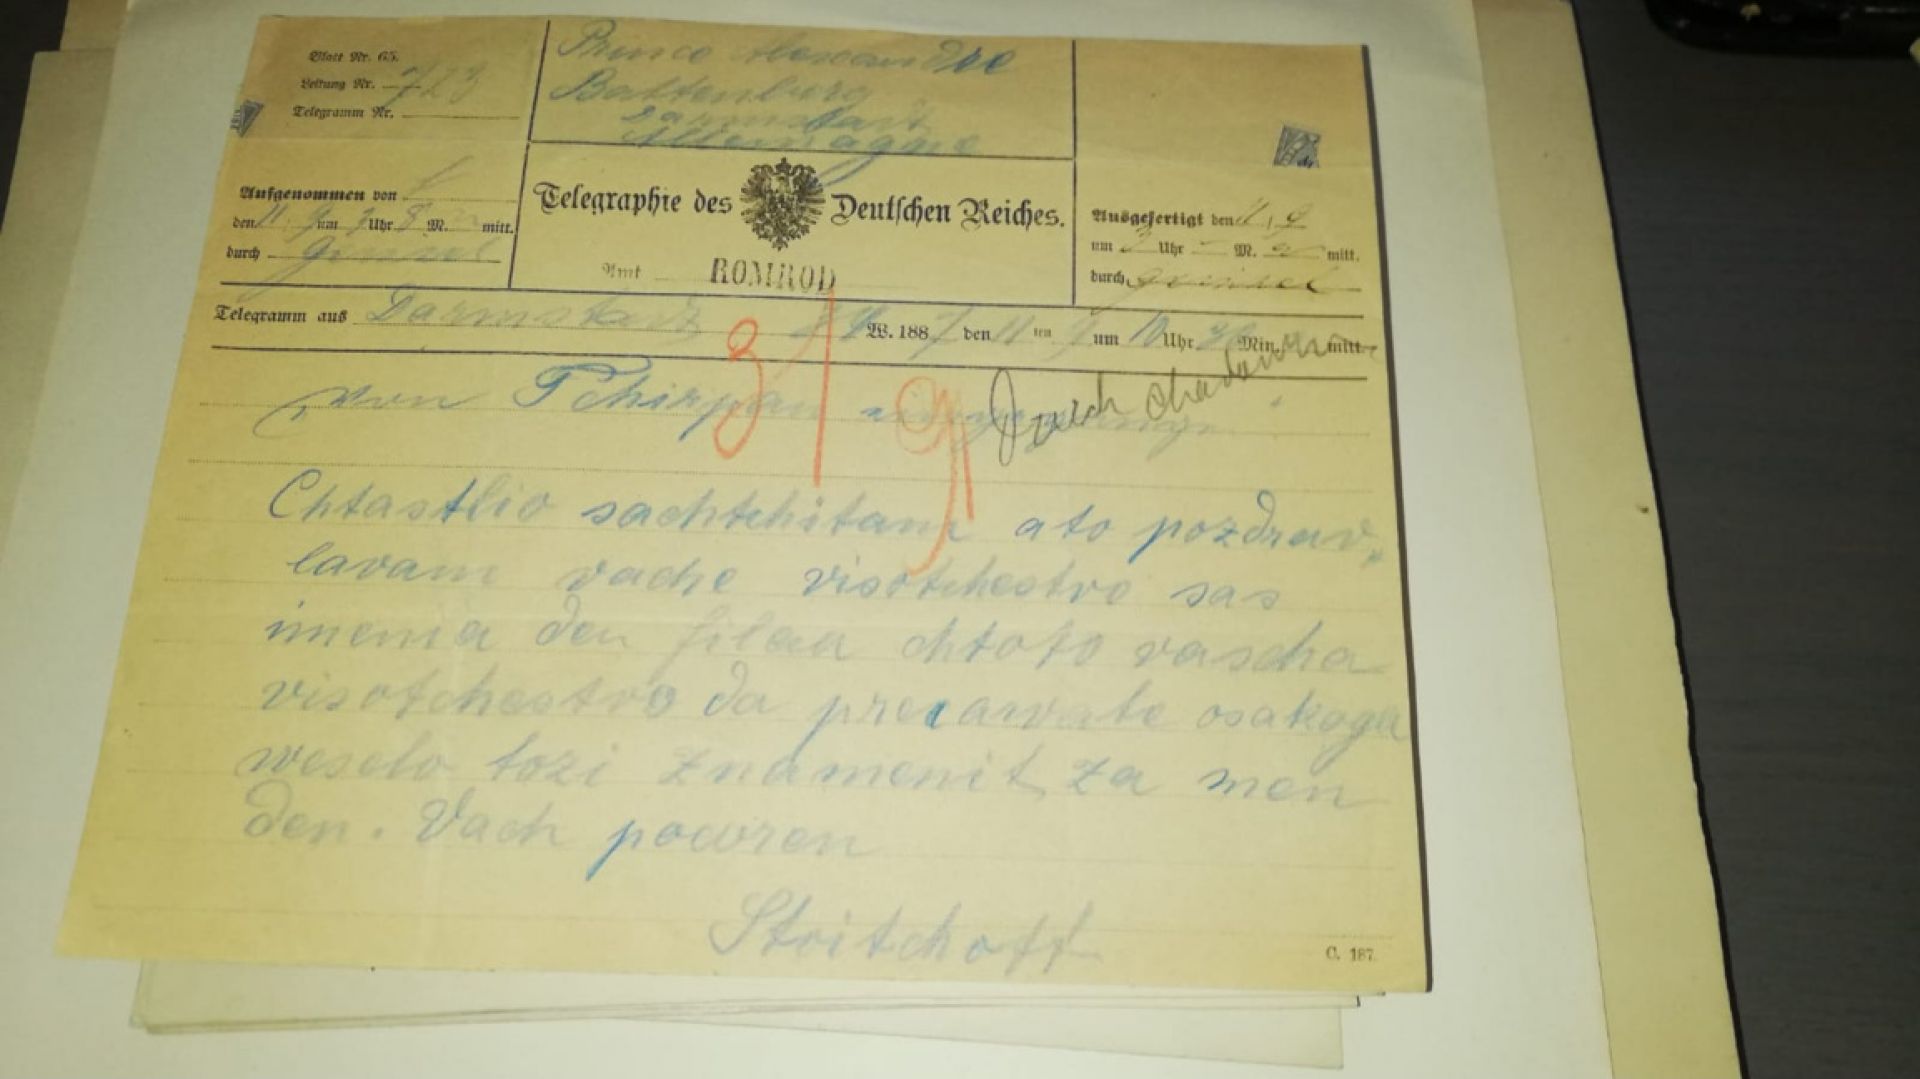 Blatt Nr. 65.
Leitung Nr. 723
Telegramm Nr.
Prince Alexandre
Battenburg
Darmstadt
Allemagne
Aufgenommen von
den 11. 9 um 3 Uhr 8 M. mitt.
durch
Telegraphie des Deutschen Reiches.
Amt ROMROD
Ausgefertigt den 11. 9
um 3 Uhr - M. mitt.
durch
Telegramm aus Darmstadt W. 188 den 11 ten 9 um 10 Uhr Min. mitt.
von Tchirpan
durch
Chtastlio sachtchitam ato pozdrav„
lavam vache visotchestvo sas
imenia den jelaa chtoto vascha
visotchestvo da precarvate osakoga
weselo tozi znamenit za men
den. Vach powren
Stoitchoff
C. 187.